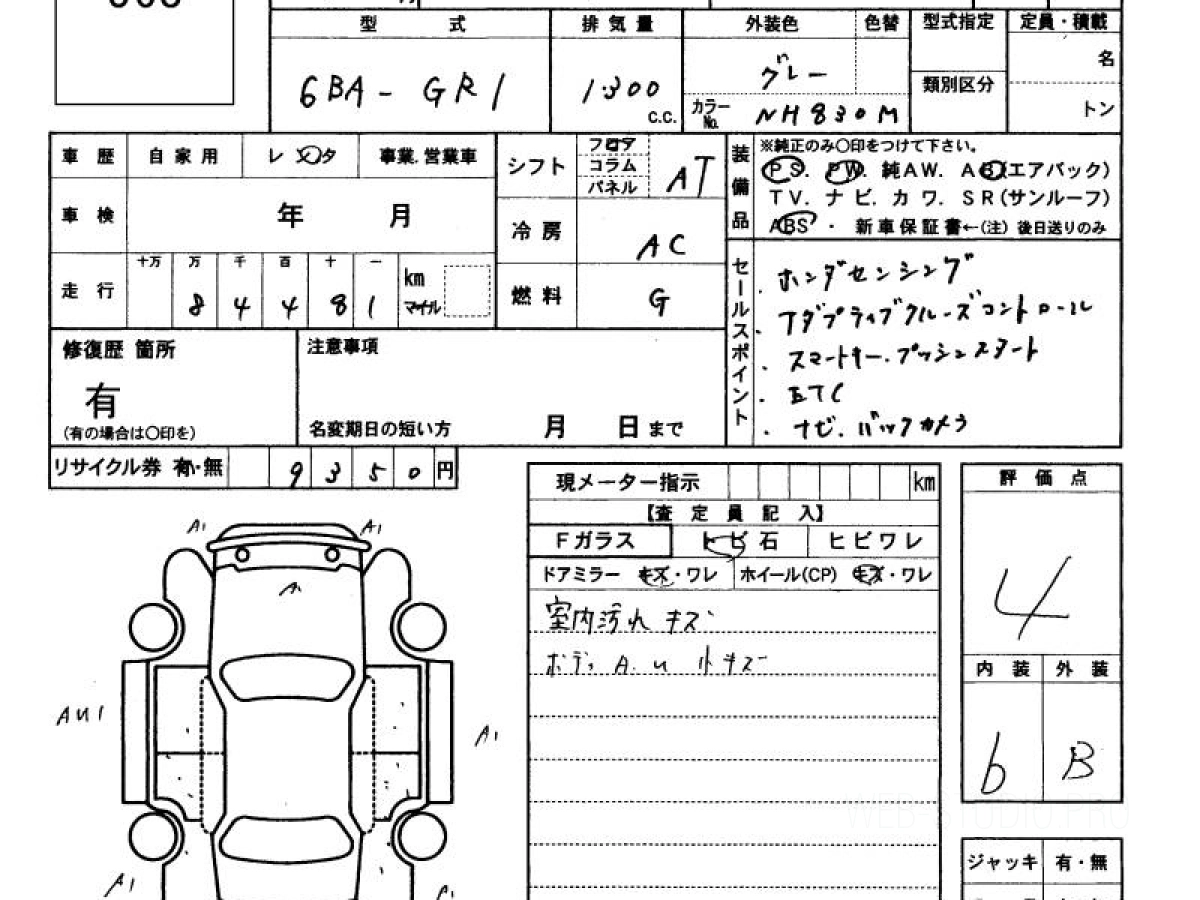 型式 排気量 外装色 色替 型式指定 定員・積載
6BA-GR1 1300 c.c. グレー 名
カラーNo. NH830M 類別区分 トン
車歴 自家用 レンタ 事業.営業車
車検 年 月
走行 十万 万 千 百 十 一
8 4 4 8 1 km マイル
シフト フロア コラム パネル AT
冷房 AC
燃料 G
装備品 ※純正のみ〇印をつけて下さい。
PS. PW. 純AW. AB(エアバック)
TV. ナビ. カワ. SR(サンルーフ)
ABS ・ 新車保証書←(注) 後日送りのみ
セールスポイント
・ホンダセンシング
・アダプティブクルーズコントロール
・スマートキー.プッシュスタート
・ETC
・ナビ.バックカメラ
修復歴 箇所
有
(有の場合は〇印を)
注意事項
名変期日の短い方 月 日まで
リサイクル券 有・無 9350円
現メーター指示 km
【査定員記入】
Fガラス トビ石 ヒビワレ
ドアミラー キズ・ワレ ホイール(CP) キズ・ワレ
室内汚れ キズ
ボディ A.U 小キズ
評価点
4
内装 外装
b B
ジャッキ 有・無
A1 A1
A1
AU1 A1
A1